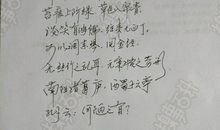 苔痕上阶绿，草色入帘青。
谈笑有鸿儒，往来无白丁。
可以调素琴，阅金经。
无丝竹之乱耳，无案牍之劳形
南阳诸葛庐，西蜀子云亭
孔子云：何陋之有？